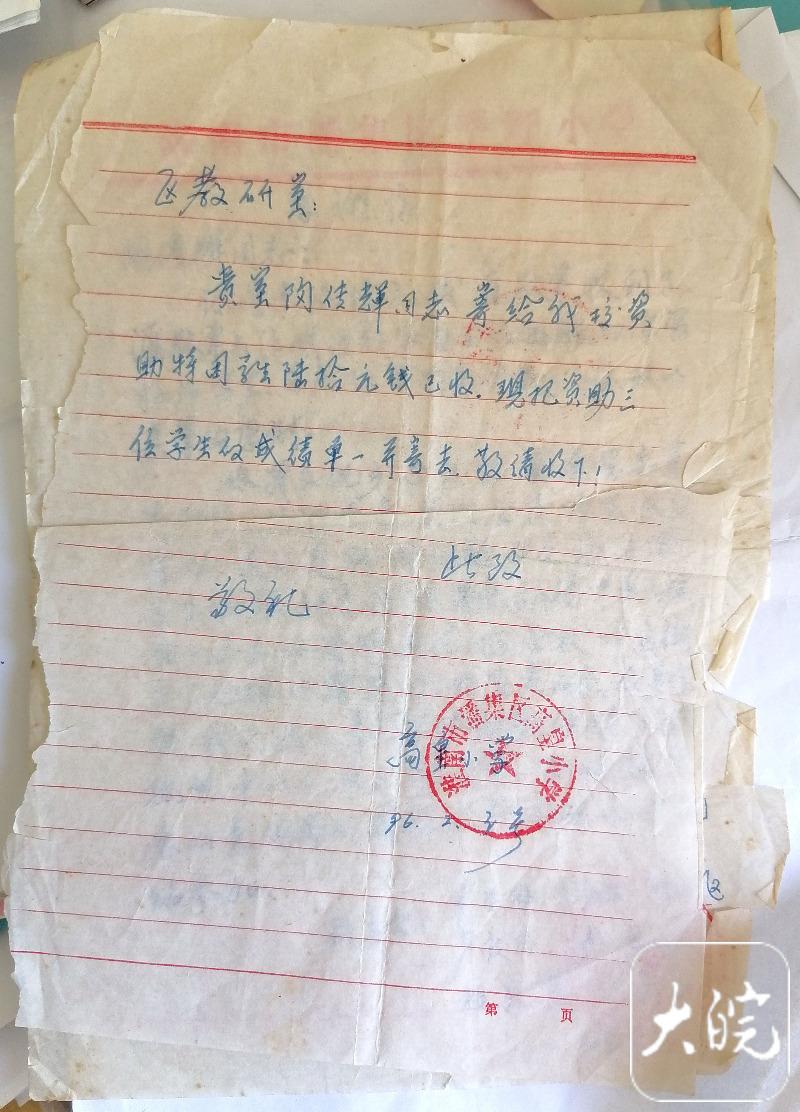 区教研室:
贵室陶传辉同志寄给我校资
助特困学生陆拾元钱已收.现把资助三
位学生的成绩单一并寄去.敬请收下!
此致
敬礼
高皇小学
淮南市潘集区高皇小学
96.2.
第 页
大皖